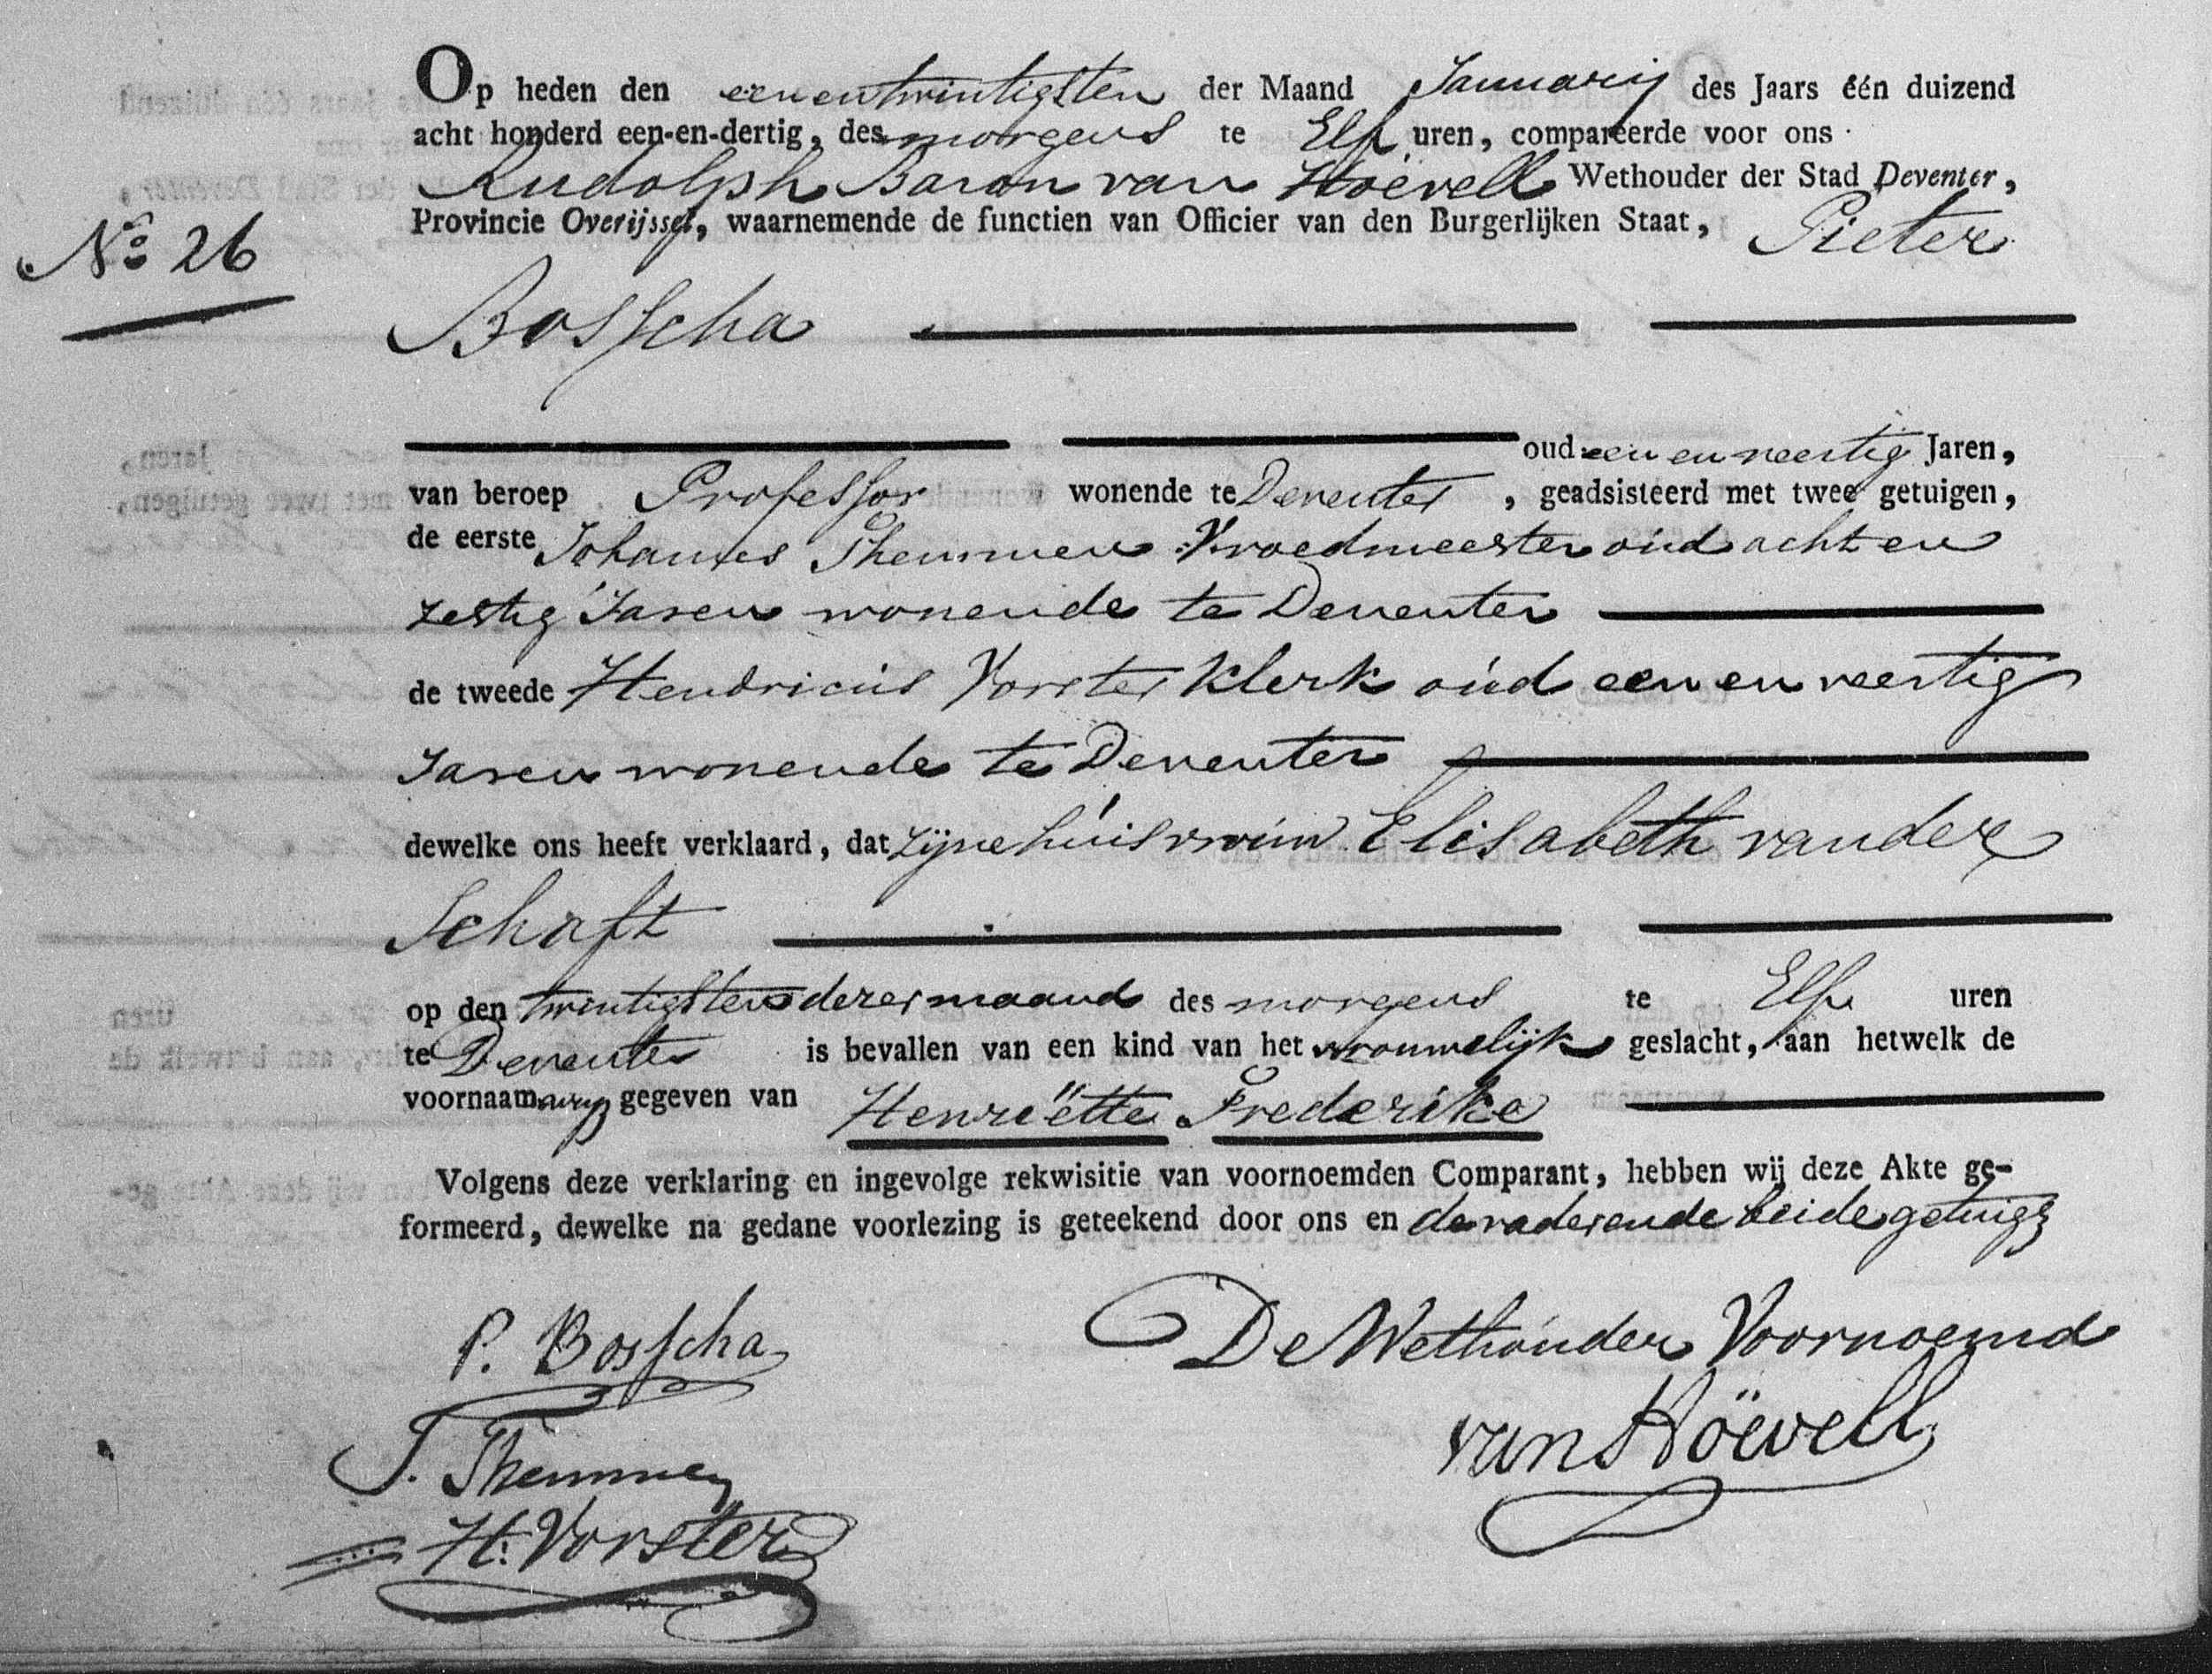 Op heden den eenentwintigsten der Maand Januarij des Jaars één duizend
acht honderd een-en-dertig, des morgens te Elf uren, compareerde voor ons
Rudolph Baron van Hoëvell Wethouder der Stad Deventer,
Provincie Overijssel, waarnemende de functien van Officier van den Burgerlijken Staat, Pieter
No 26
Bosscha
oud een en veertig Jaren,
van beroep Professor wonende te Deventer, geadsisteerd met twee getuigen,
de eerste Johannes Themmen Vroedmeester oud acht en
zestig Jaren wonende te Deventer
de tweede Hendricus Vorster Klerk oud een en veertig
Jaren wonende te Deventer
dewelke ons heeft verklaard, dat zijne huisvrouw Elisabeth vander
Schaft
op den twintigsten dezer maand des morgens te Elf uren
te Deventer is bevallen van een kind van het vrouwelijk geslacht, aan hetwelk de
voornaamen zijn gegeven van Henriëtte Frederike
Volgens deze verklaring en ingevolge rekwisitie van voornoemden Comparant, hebben wij deze Akte ge-
formeerd, dewelke na gedane voorlezing is geteekend door ons en de vader ende beide getuigen
P. Bosscha
De Wethouder Voornoemd
J. Themmen
van Höevell
H. Vorster